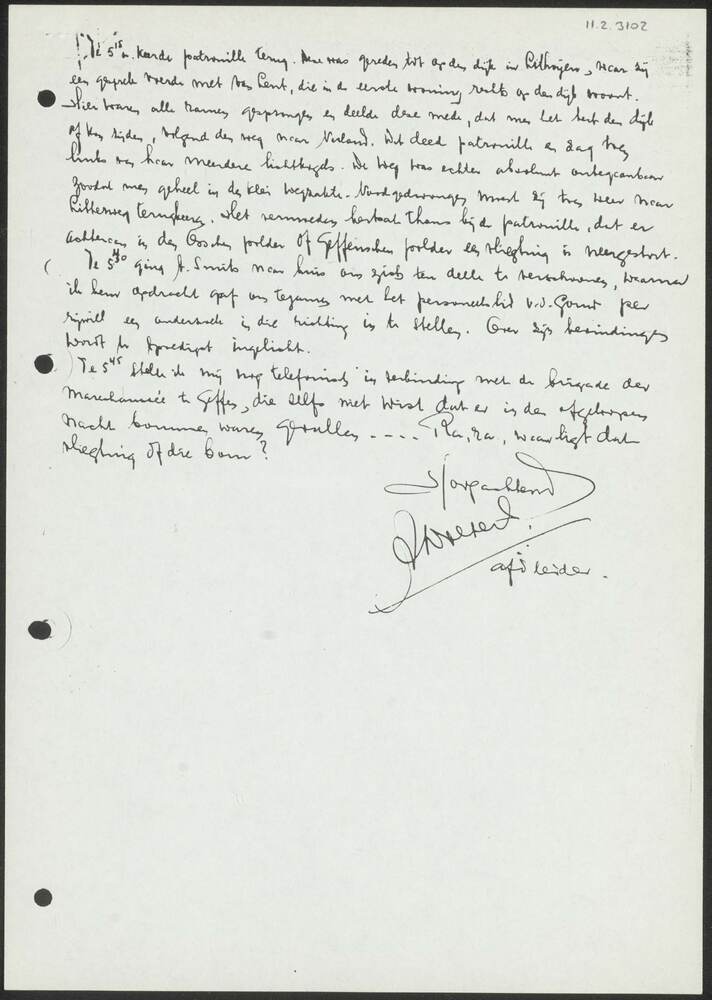 11.2.3102
Te 5¹⁵ u. keerde patrouille terug. Deze was gereden tot op den dijk in Lithoijen, waar zij
een gesprek voerde met van Lent, die in de eerste woning rechts op den dijk woont.
Hier waren alle ramen gesprongen en deelde deze mede, dat men het best den dijk
af kon rijden, volgend den weg naar Verland. Dit deed patrouille en zag toen
links van haar meerdere lichtkogels. De weg was echter absoluut onbegaanbaar
zoodat men geheel in de klei wegzakte. Noodgedwongen moest zij toen weer naar
Lithschenweg terugkeeren. Het vermoeden bestaat thans bij de patrouille, dat er
achteraan in den Osschen polder of Geffenschen polder een vliegtuig is neergestort.
Te 5³⁰ ging A. Smits naar huis om zich ten deele te verschoonen, waarna
ik hem opdracht gaf om tezamen met het personeelslid v.d. per
rijwiel een onderzoek in die richting in te stellen. Over zijn bevindingen
wordt ten spoedigst ingelicht.
Te 5⁴⁵ stelde ik mij nog telefonisch in verbinding met de brigade der
Marechaussée te Geffen, die zelfs niet wist dat er in den afgeloopen
nacht bommen waren gevallen .... Ra, ra, waar ligt dat
vliegtuig of die bom?
Hoogachtend
afd leider.